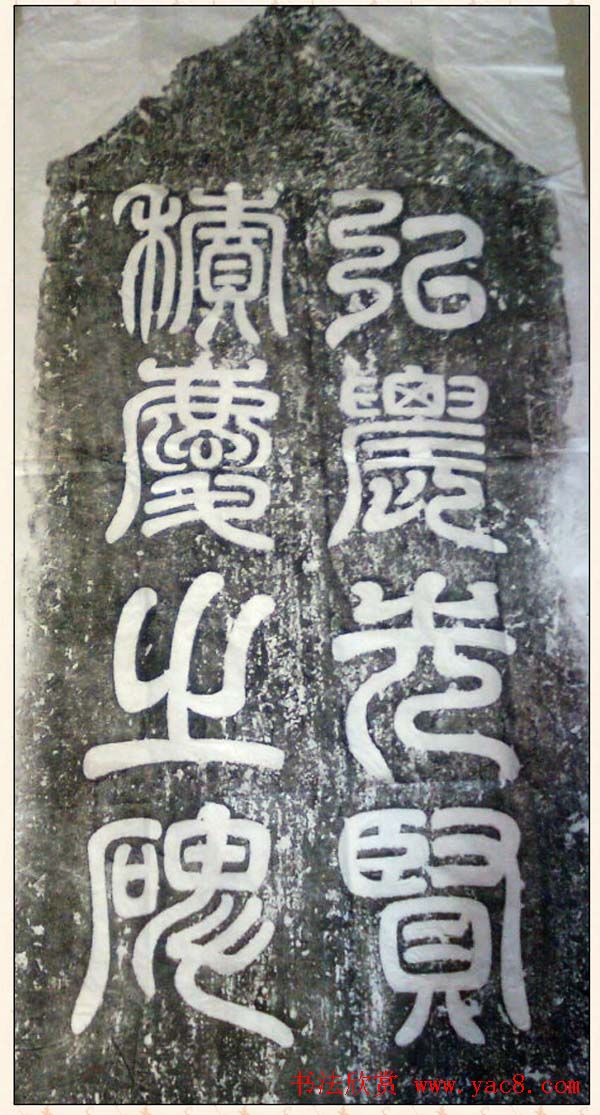 弘農先賢
積慶之碑
书法欣赏 www.yac8.com